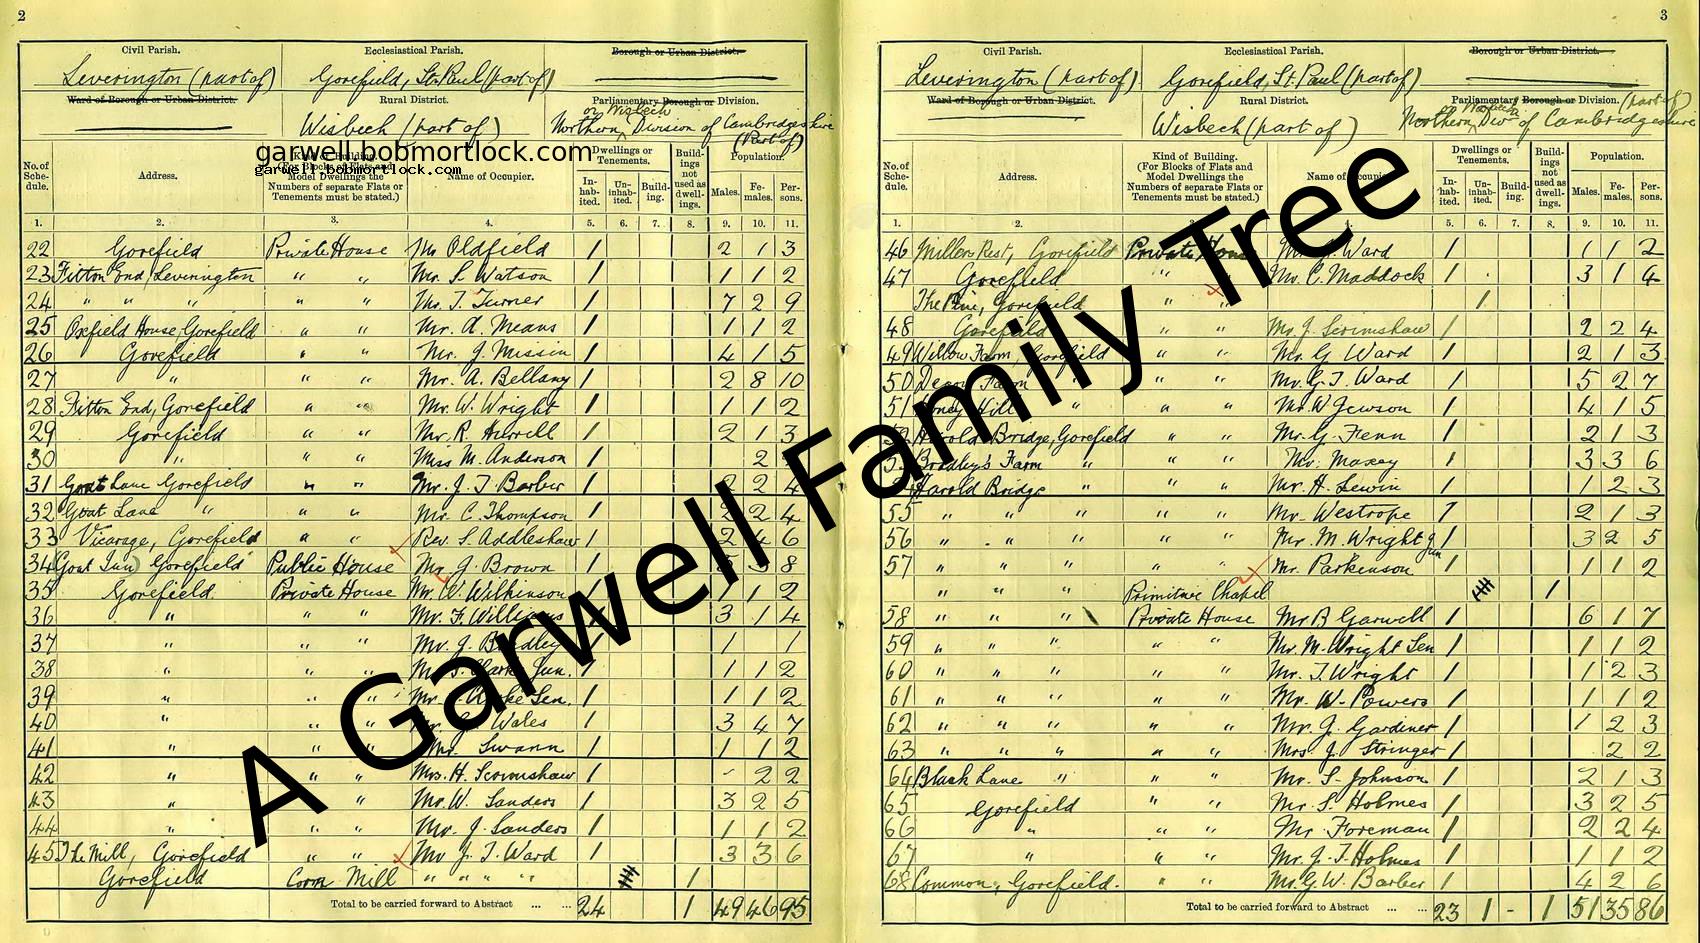 2
Civil Parish. Ecclesiastical Parish. Borough or Urban District.
Leverington (part of) Gorefield, St. Paul (part of)
Ward of Borough or Urban District. Rural District. Parliamentary Borough or Division.
Wisbech (part of) or Wisbech Northern Division of Cambridgeshire (Part of)
garwell.bobmortlock.com
garwell.bobmortlock.com
No. of Schedule. Address. Kind of Building. (For Blocks of Flats and Model Dwellings the Numbers of separate Flats or Tenements must be stated.) Name of Occupier. Dwellings or Tenements. Inhabited. Uninhabited. Building. Buildings not used as dwellings. Population. Males. Females. Persons.
1. 2. 3. 4. 5. 6. 7. 8. 9. 10. 11.
22 Gorefield Private House Mr Oldfield 1 2 1 3
23 Fitton End, Leverington " " Mr. S. Watson 1 1 1 2
24 " " " " " Mr. T. Turner 1 7 2 9
25 Oxfield House, Gorefield " " Mr. A. Means 1 1 1 2
26 Gorefield " " Mr. J. Missin 1 4 1 5
27 " " " Mr. A. Bellamy 1 2 8 10
28 Fitton End, Gorefield " " Mr. W. Wright 1 1 1 2
29 Gorefield " " Mr. R. Hurrell 1 2 1 3
30 " " " Miss M. Anderson 1 2
31 Goat Lane Gorefield " " Mr. J. T. Barber 1 2 2 4
32 Goat Lane " " " Mr. C. Thompson 1 2 2 4
33 Vicarage, Gorefield " " Rev. S. Addleshaw 1 2 4 6
34 Goat Inn Gorefield Public House Mr J. Brown 1 5 3 8
35 Gorefield Private House Mr. W. Wilkinson 1 1 1 2
36 " " " Mr. F. Williams 1 3 1 4
37 " " " Mr. J. Bradley 1 1 1
38 " " " Clarke Jun. 1 1 1 2
39 " " " Mr. Clarke Sen. 1 1 1 2
40 " " " Wales 1 3 4 7
41 " " " Mr. Swann 1 1 1 2
42 " " " Mrs. H. Scrimshaw 1 - 2 2
43 " " " Mr. W. Sanders 1 3 2 5
44 " " " Mr. J. Sanders 1 1 1 2
45 The Mill, Gorefield " " Mr J. T. Ward 1 3 3 6
Gorefield Corn Mill " " " " 1
Total to be carried forward to Abstract ... ... 24 1 49 46 95
3
Civil Parish. Ecclesiastical Parish. Borough or Urban District.
Leverington (part of) Gorefield, St. Paul (part of)
Ward of Borough or Urban District. Rural District. Parliamentary Borough or Division.
Wisbech (part of) or Wisbech Northern Divn of Cambridgeshire (part of)
No. of Schedule. Address. Kind of Building. (For Blocks of Flats and Model Dwellings the Numbers of separate Flats or Tenements must be stated.) Name of Occupier. Dwellings or Tenements. Inhabited. Uninhabited. Building. Buildings not used as dwellings. Population. Males. Females. Persons.
1. 2. 4. 5. 6. 7. 8. 9. 10. 11.
46 Millers Rest, Gorefield Private House Ward 1 1 1 2
47 Gorefield " " Mr. C. Maddock 1 3 1 4
The Pine, Gorefield " " 1
48 Gorefield " " Mr. J. Scrimshaw 1 2 2 4
49 Willow Farm, Gorefield " " Mr. G. Ward 1 2 1 3
50 Farm " " " Mr. G. T. Ward 1 5 2 7
51 Hill " " " Mr. W Jewson 1 4 1 5
52 Harold Bridge, Gorefield " " Mr. G. Fenn 1 2 1 3
53 Bradley's Farm " " " Mr. Maxey 1 3 3 6
54 Harold Bridge " " " Mr. H. Lewin 1 1 2 3
55 " " " " " Mr. Westrope 1 2 1 3
56 " " " " " Mr. M. Wright Jun 1 3 2 5
57 " " " " " Mr. Parkinson 1 1 1 2
" " " Primitive Chapel 1
58 " " " Private House Mr B Garwell 1 6 1 7
59 " " " " Mr. M. Wright Sen 1 1 1 2
60 " " " " " Mr. T. Wright 1 1 2 3
61 " " " " " Mr. W. Powers 1 1 1 2
62 " " " " " Mr. J. Gardiner 1 1 2 3
63 " " " " " Mrs. J. Stringer 1 2 2
64 Black Lane " " " Mr. S. Johnson 1 2 1 3
65 Gorefield " " Mr. S. Holmes 1 3 2 5
66 " " " Mr Foreman 1 2 2 4
67 " " " Mr. J. T. Holmes 1 1 1 2
68 Common, Gorefield. " " Mr. G. W. Barber 1 4 2 6
Total to be carried forward to Abstract ... ... 23 1 - 1 51 35 86
A Garwell Family Tree